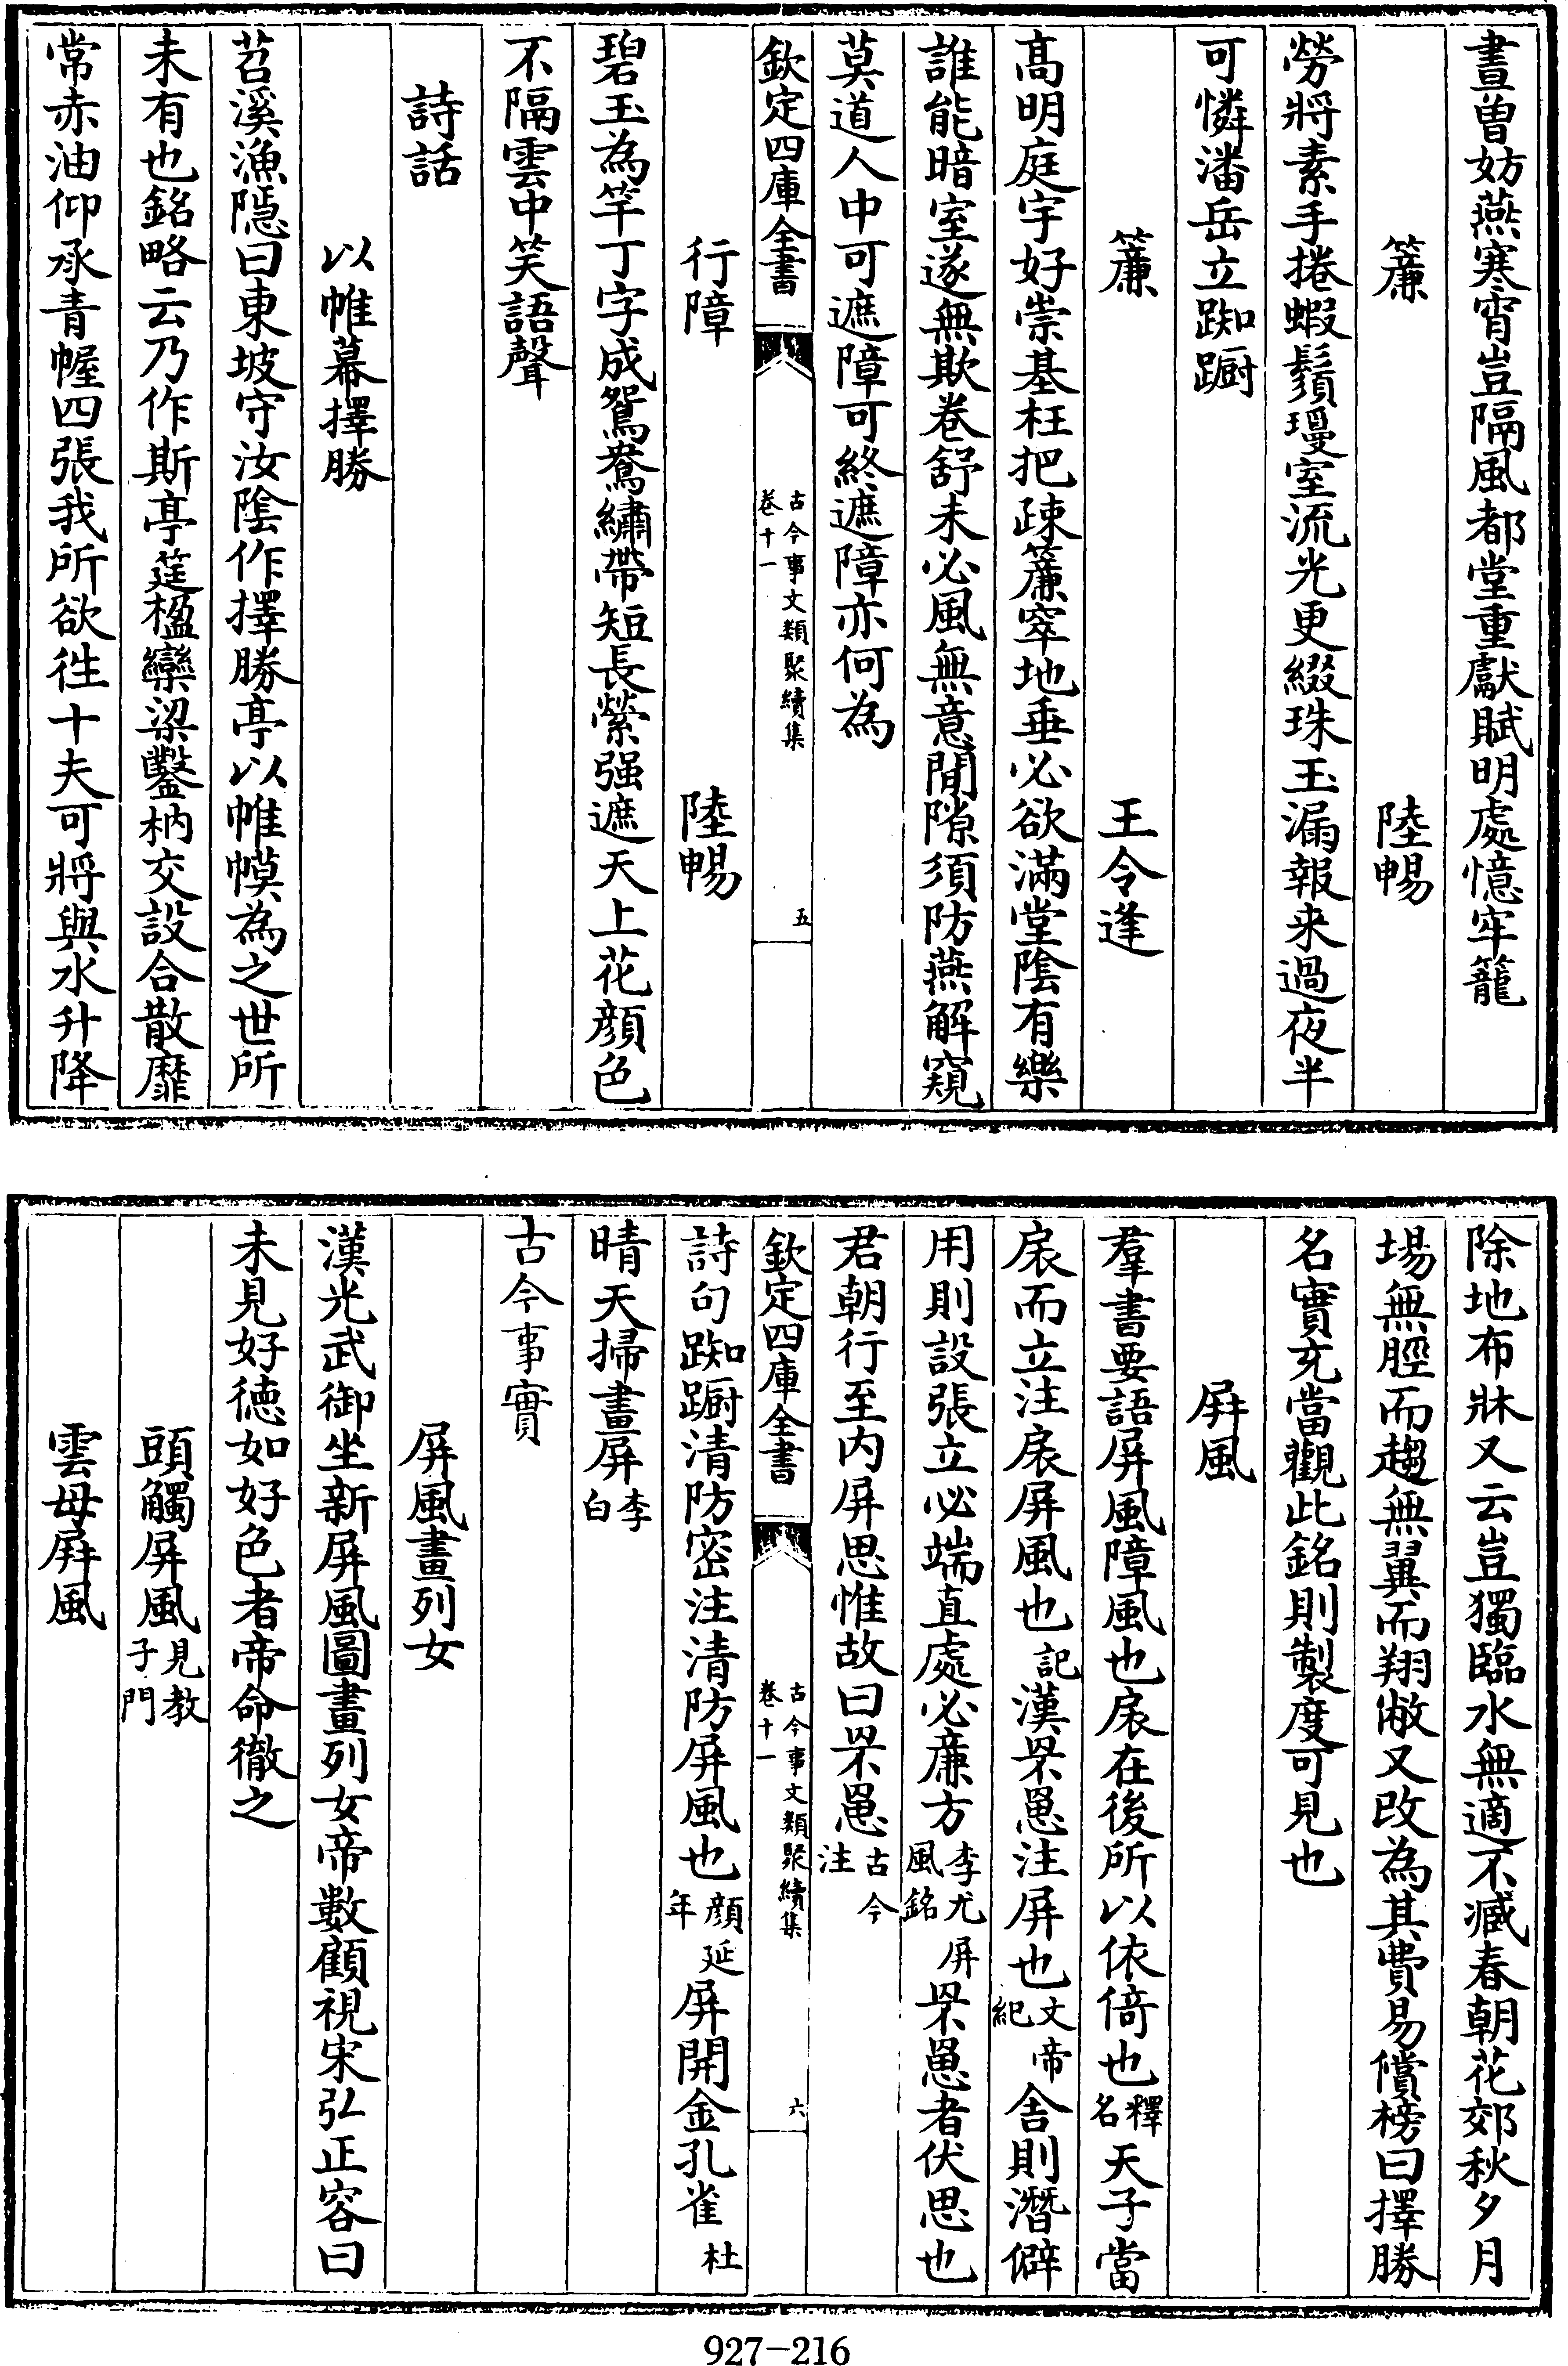 晝曽妨燕寒宵豈隔風都堂重獻賦明處憶牢籠
簾　陸暢
勞將素手捲蝦鬚瓊室流光更綴珠玉漏報来過夜半
可憐潘岳立踟蹰
簾　王令逢
髙明庭宇好崇基枉把疎簾窣地垂必欲滿堂隂有樂
誰能暗室遂無欺卷舒未必風無意閒隙須防燕解窺
莫道人中可遮障可終遮障亦何為
欽定四庫全書　古今事文類聚續集　卷十一　五
行障　陸暢
碧玉為竿丁字成鴛鴦繡帶短長縈强遮天上花顔色
不隔雲中笑語聲
詩話
以帷幕擇勝
苕溪漁隠曰東坡守汝隂作擇勝亭以帷幙為之世所
未有也銘略云乃作斯亭筵楹欒梁鑿枘交設合散靡
常赤油仰承青幄四張我所欲往十夫可將與水升降
除地布牀又云豈獨臨水無適不臧春朝花郊秋夕月
場無脛而趨無翼而翔敝又改為其費易償榜曰擇勝
名實充當觀此銘則製度可見也
屏風
羣書要語屏風障風也扆在後所以依倚也釋名天子當
扆而立注扆屏風也記漢罘罳注屏也文帝紀舎則潛僻
用則設張立必端直處必亷方李尤屏風銘罘罳者伏思也
君朝行至内屏思惟故曰罘罳古今注
欽定四庫全書　古今事文類聚續集　卷十一　六
詩句踟蹰清防密注清防屏風也顔延年屏開金孔雀杜
晴天掃畫屏李白
古今事實
屏風畫列女
漢光武御坐新屏風圖畫列女帝數顧視宋弘正容曰
未見好徳如好色者帝命徹之
頭觸屏風見教子門
雲母屏風
927-216